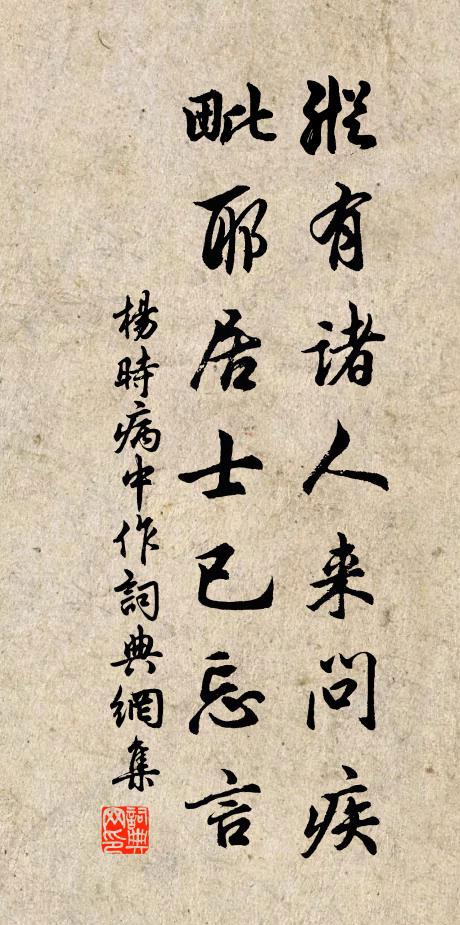 縱有諸人来問疾
毗耶居士已忘言
楊時病中作詞典網集
詞典网印